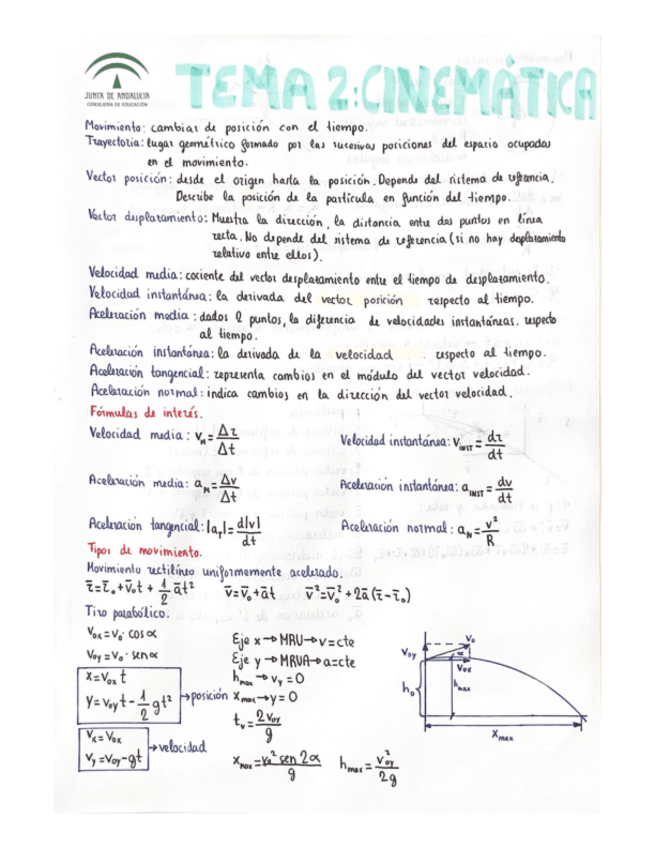 JUNTA DE ANDALUCIA
CONSEJERIA DE EDUCACIÓN
TEMA 2: CINEMÁTICA
Movimiento: cambiar de posición con el tiempo.
Trayectoria: lugar geométrico formado por las sucesivas posiciones del espacio ocupadas
en el movimiento.
Vector posición: desde el origen hasta la posición. Depende del sistema de referencia.
Describe la posición de la partícula en función del tiempo.
Vector desplazamiento: Muestra la dirección, la distancia entre dos puntos en línea
recta. No depende del sistema de referencia (si no hay desplazamiento
relativo entre ellos).
Velocidad media: cociente del vector desplazamiento entre el tiempo de desplazamiento.
Velocidad instantánea: la derivada del vector posición respecto al tiempo.
Aceleración media: dados 2 puntos, la diferencia de velocidades instantáneas. respecto
al tiempo.
Aceleración instantánea: la derivada de la velocidad respecto al tiempo.
Aceleración tangencial: representa cambios en el módulo del vector velocidad.
Aceleración normal: indica cambios en la dirección del vector velocidad.
Fórmulas de interés.
Velocidad media: v_M = Δr/Δt
Velocidad instantánea: v_INST = dr/dt
Aceleración media: a_M = Δv/Δt
Aceleración instantánea: a_INST = dv/dt
Aceleración tangencial: |a_T| = d|v|/dt
Aceleración normal: a_N = v²/R
Tipos de movimiento.
Movimiento rectilíneo uniformemente acelerado.
r̄ = r̄₀ + v̄₀t + 1/2 āt² v̄ = v̄₀ + āt v̄² = v̄₀² + 2ā (r̄ - r̄₀)
Tiro parabólico:
v₀ₓ = v₀ · cos α
v₀y = v₀ · sen α
x = v₀ₓ t
y = v₀y t - 1/2 gt²
→ posición
vₓ = v₀ₓ
vy = v₀y - gt
→ velocidad
Eje x → MRU → v = cte
Eje y → MRUA → a = cte
h_max → vy = 0
x_max → y = 0
t_v = 2v₀y/g
x_max = v₀² sen 2α/g
h_max = v₀y²/2g
v₀y
v₀
α
v₀ₓ
h₀
h_max
x_max